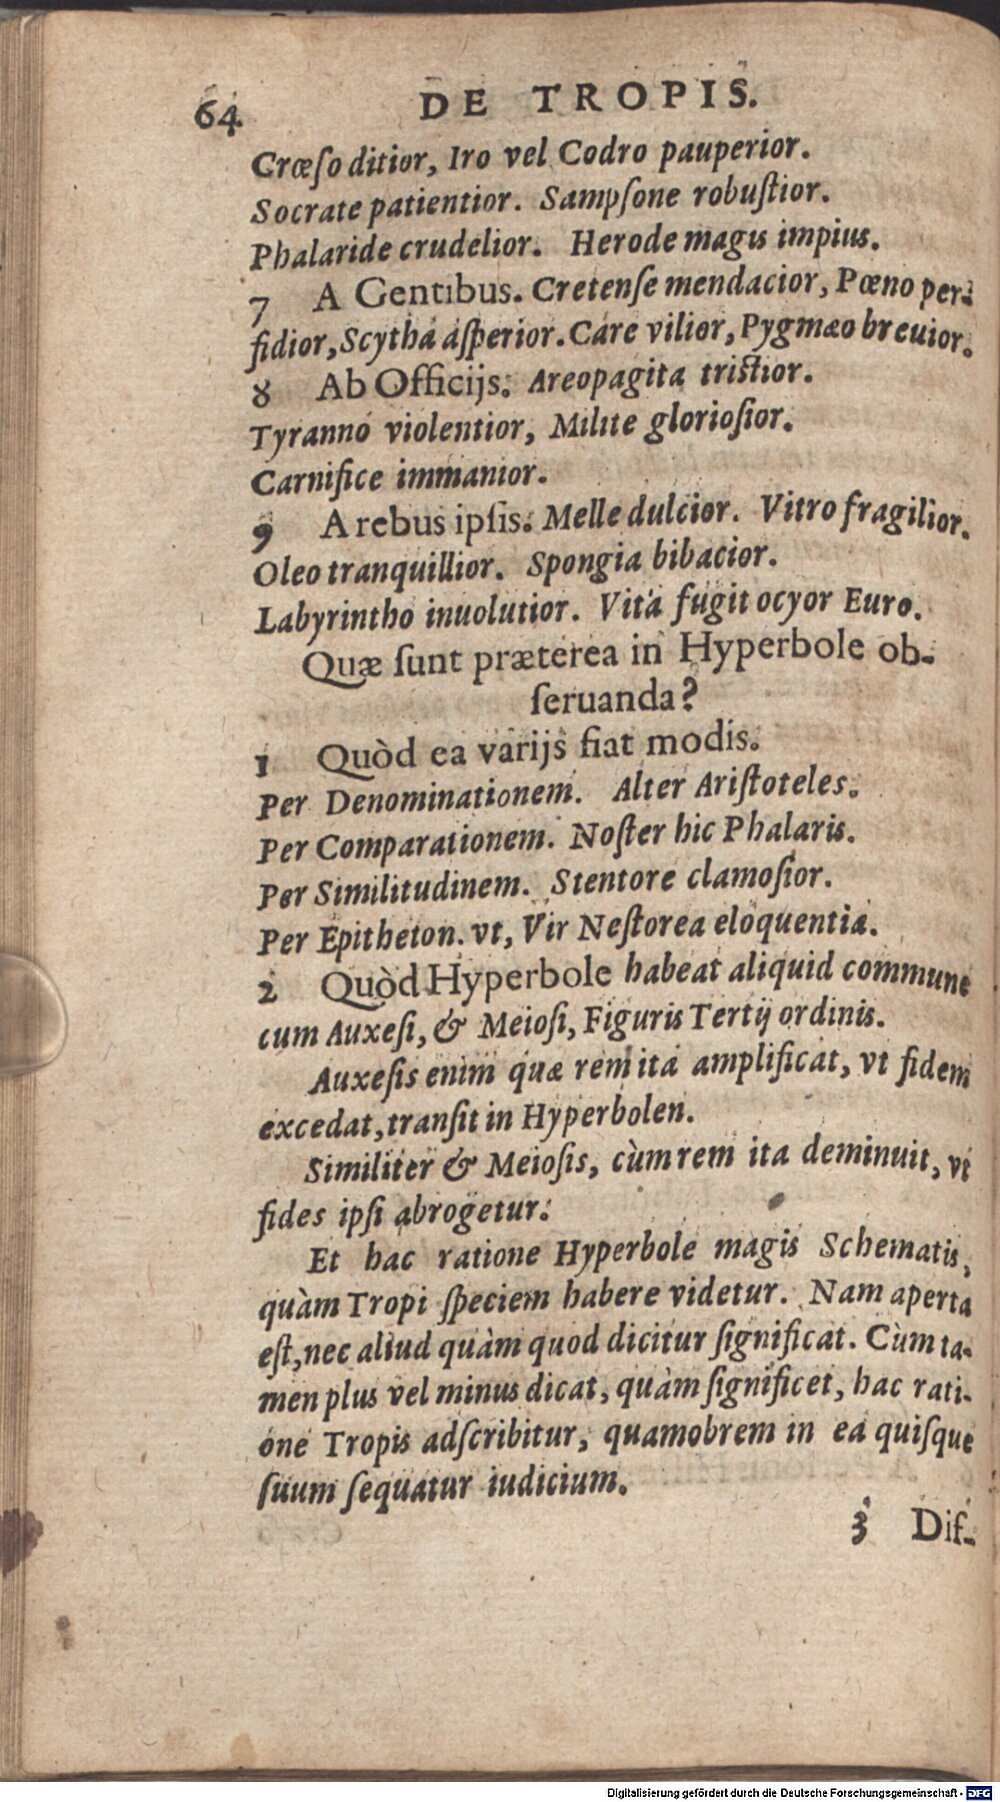 64 DE TROPIS.
Crœſo ditior, Iro vel Codro pauperior.
Socrate patientior. Sampſone robuſtior.
Phalaride crudelior. Herode magis impius.
7 A Gentibus. Cretenſe mendacior, Pœno per-
fidior, Scytha aſperior. Care vilior, Pygmæo breuior.
8 Ab Officijs. Areopagita triſtior.
Tyranno violentior, Milite glorioſior.
Carnifice immanior.
9 A rebus ipſis. Melle dulcior. Vitro fragilior.
Oleo tranquillior. Spongia bibacior.
Labyrintho inuolutior. Vita fugit ocyor Euro.
Quæ ſunt præterea in Hyperbole ob-
ſeruanda?
1 Quòd ea varijs fiat modis.
Per Denominationem. Alter Ariſtoteles.
Per Comparationem. Noſter hic Phalaris.
Per Similitudinem. Stentore clamoſior.
Per Epitheton. vt, Vir Neſtorea eloquentia.
2 Quòd Hyperbole habeat aliquid commune
cum Auxeſi, & Meioſi, Figuris Tertij ordinis.
Auxeſis enim quæ rem ita amplificat, vt fidem
excedat, tranſit in Hyperbolen.
Similiter & Meioſis, cùm rem ita deminuit, vt
fides ipſi abrogetur.
Et hac ratione Hyperbole magis Schematis,
quàm Tropi ſpeciem habere videtur. Nam aperta
eſt, nec aliud quàm quod dicitur ſignificat. Cùm ta-
men plus vel minus dicat, quàm ſignificet, hac rati-
one Tropis adſcribitur, quamobrem in ea quiſque
ſuum ſequatur iudicium.
3 Diſ-
Digitalisierung gefördert durch die Deutsche Forschungsgemeinschaft - DFG